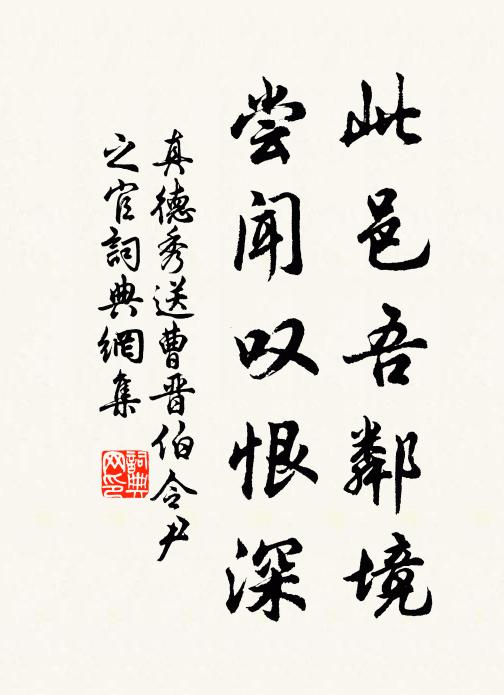 此邑吾鄰境
尝闻叹恨深
真德秀送曹晋伯令尹
之官詞典網集
詞典
网印